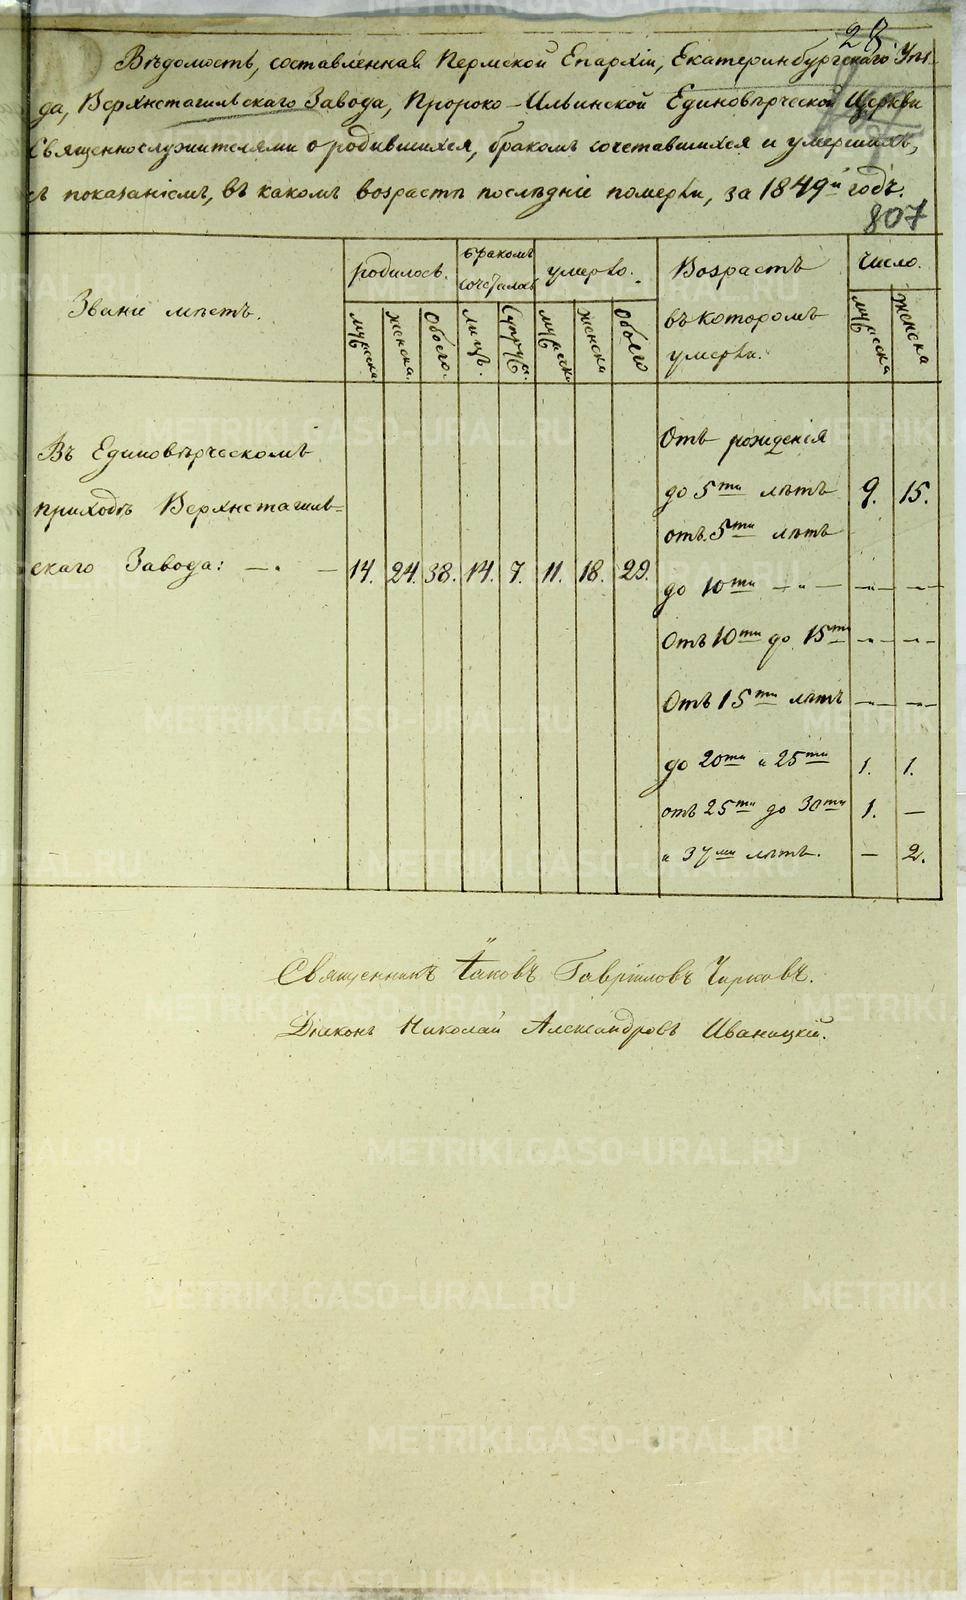 28
Вѣдомость, составленная Пермской Епархіи, Екатеринбургскаго Уѣз
да, Верхнетагильскаго Завода, Пророко-Ильинской Единовѣрческой Церкви
Священнослужителями о родившихся, бракомъ сочетавшихся и умершихъ,
съ показаніемъ, въ какомъ возрастѣ послѣдніе померли, за 1849й годъ.
807
Званіе мѣстъ.
родилось.
бракомъ сочеталось
умерло.
Возрастъ въ которомъ умерли.
число.
мужеска
женска.
Обоего.
лицъ.
Супруж.
мужеска
женска
Обоего
мужеска
женска
Въ Единовѣрческомъ
приходѣ Верхнетагиль=
скаго Завода: — . — 14. 24. 38. 14. 7. 11. 18. 29.
Отъ рожденія
до 5ти лѣтъ 9. 15.
отъ 5ти лѣтъ
до 10ти — „ — — „ — — „ —
Отъ 10ти до 15ти — „ — — „ —
Отъ 15ти лѣтъ — „ — — „ —
до 20ти и 25ти 1. 1.
отъ 25ти до 30ти 1. —
и 37ми лѣтъ. — 2.
Священникъ Іаковъ Гавріиловъ Чирковъ.
Діаконъ Николай Александровъ Иваницкій.
METRIKI.GASO-URAL.RU